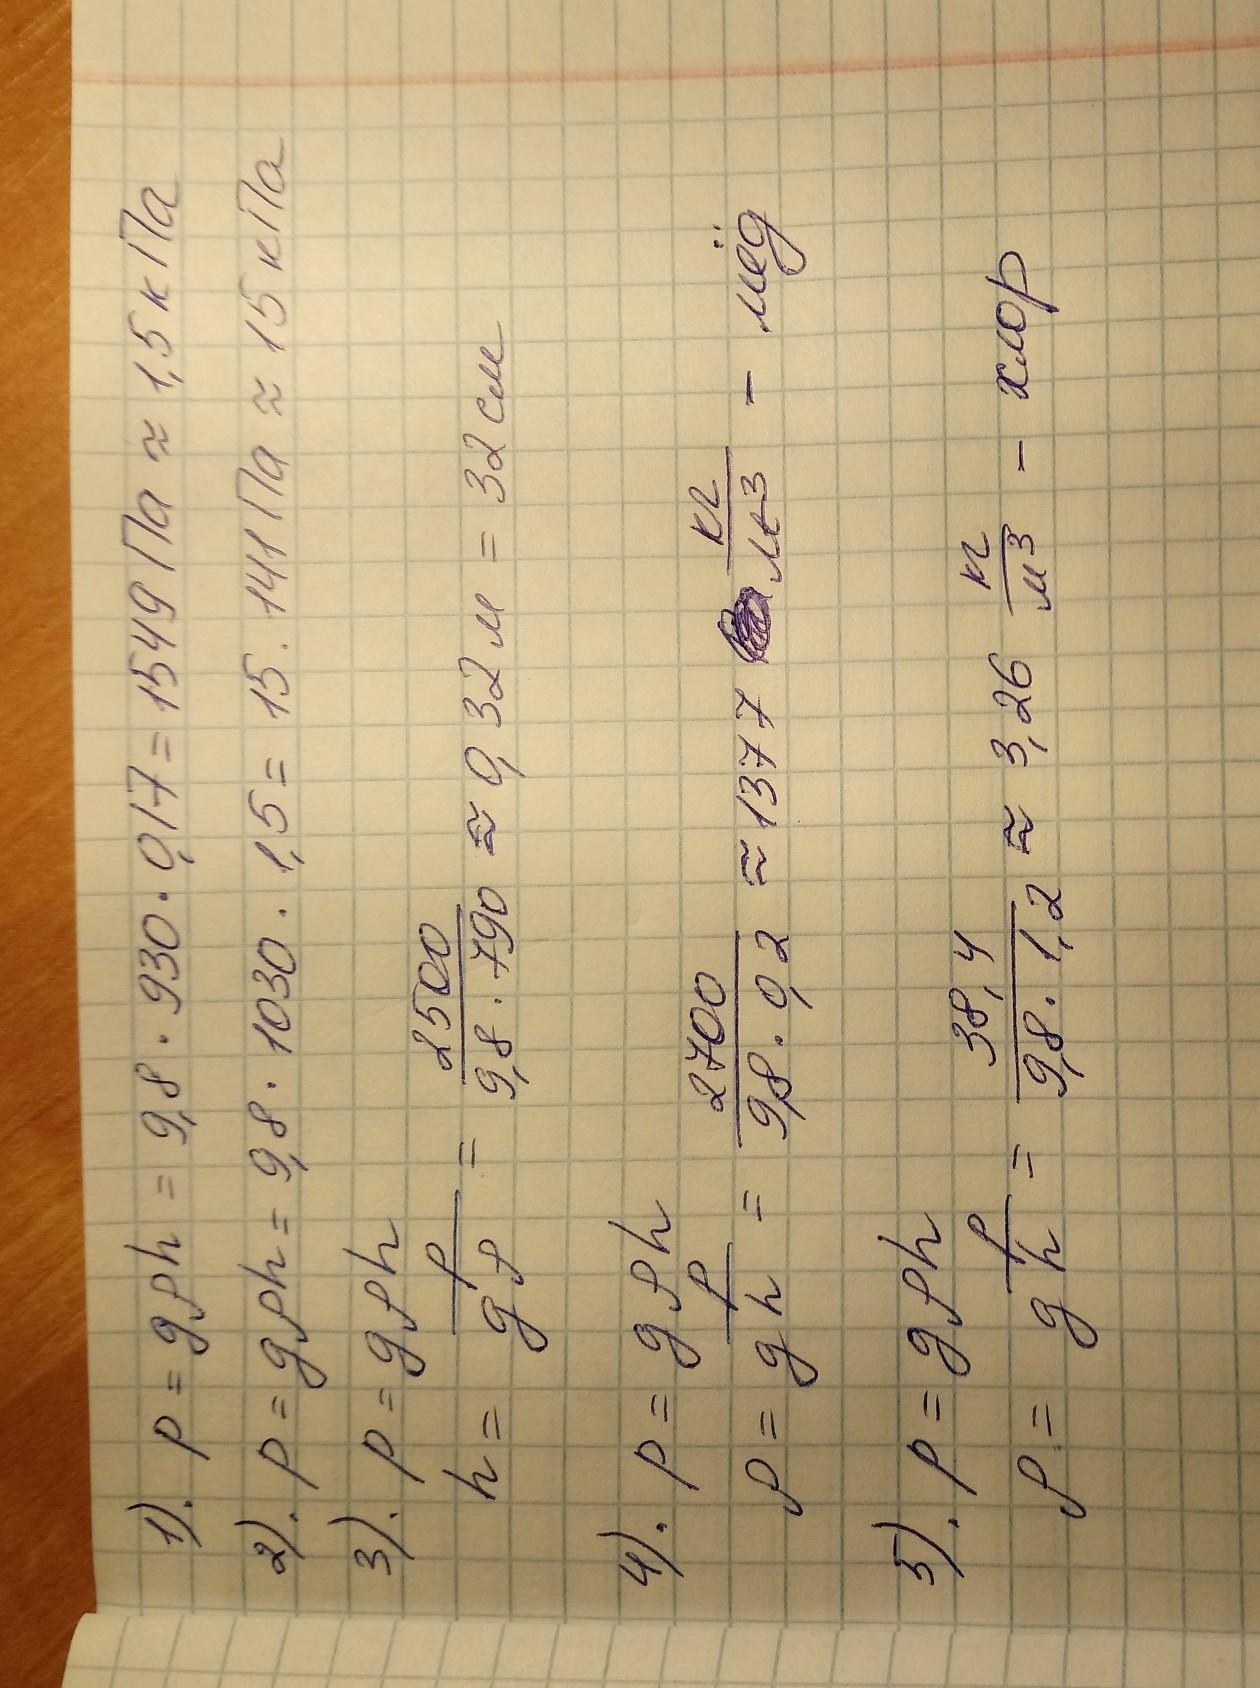 1). p = gρh = 9,8 · 930 · 0,17 = 1549 Па ≈ 1,5 кПа
2). p = gρh = 9,8 · 1030 · 1,5 = 15.141 Па ≈ 15 кПа
3). p = gρh
h = p/gρ = 2500/9,8 · 790 ≈ 0,32 м = 32 см
4). p = gρh
ρ = p/gh = 2700/9,8 · 0,2 ≈ 1377 кг/м3 – мёд
5). p = gρh
ρ = p/gh = 38,4/9,8 · 1,2 ≈ 3,26 кг/м3 – хлор